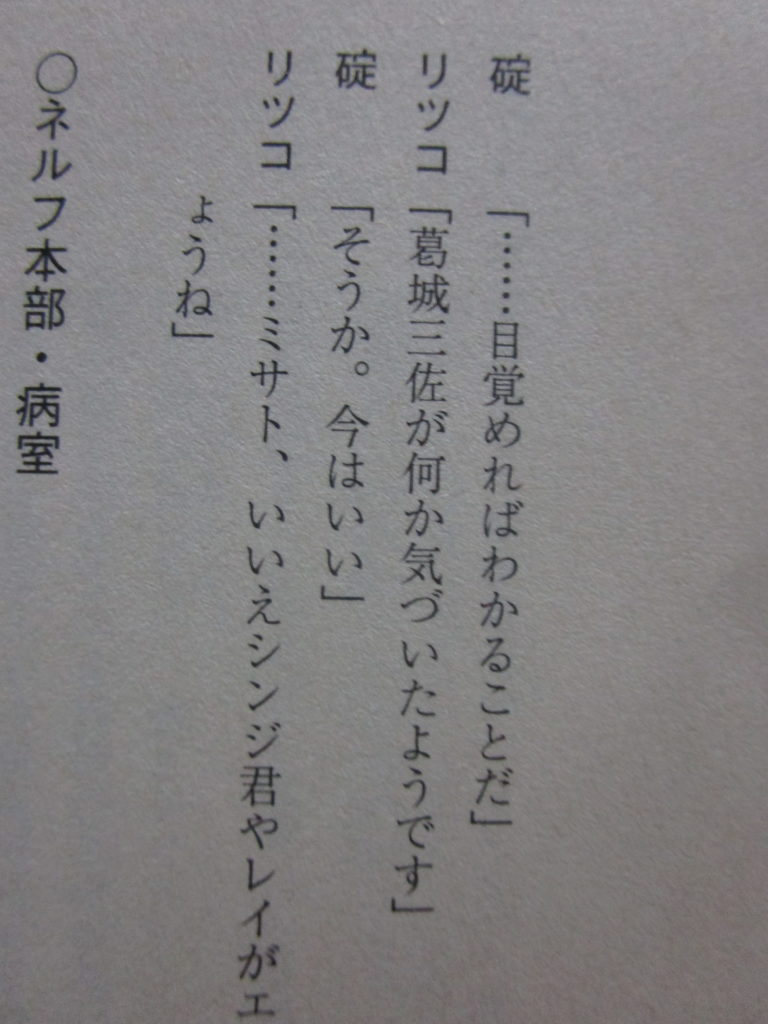 碇　「……目覚めればわかることだ」
リツコ「葛城三佐が何か気づいたようです」
碇　「そうか。今はいい」
リツコ「……ミサト、いいえシンジ君やレイがエ
ょうね」
○ネルフ本部・病室